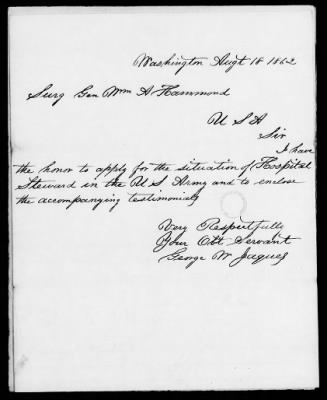 Washington Augt 18 1862
Surg Gen Wm A Hammond
U S A
Sir
I have
the honor to apply for the situation of Hospital
Steward in the U S Army and to enclose
the accompanying testimonials
Very Respectfully
Your Obt Servant
George W Jaques